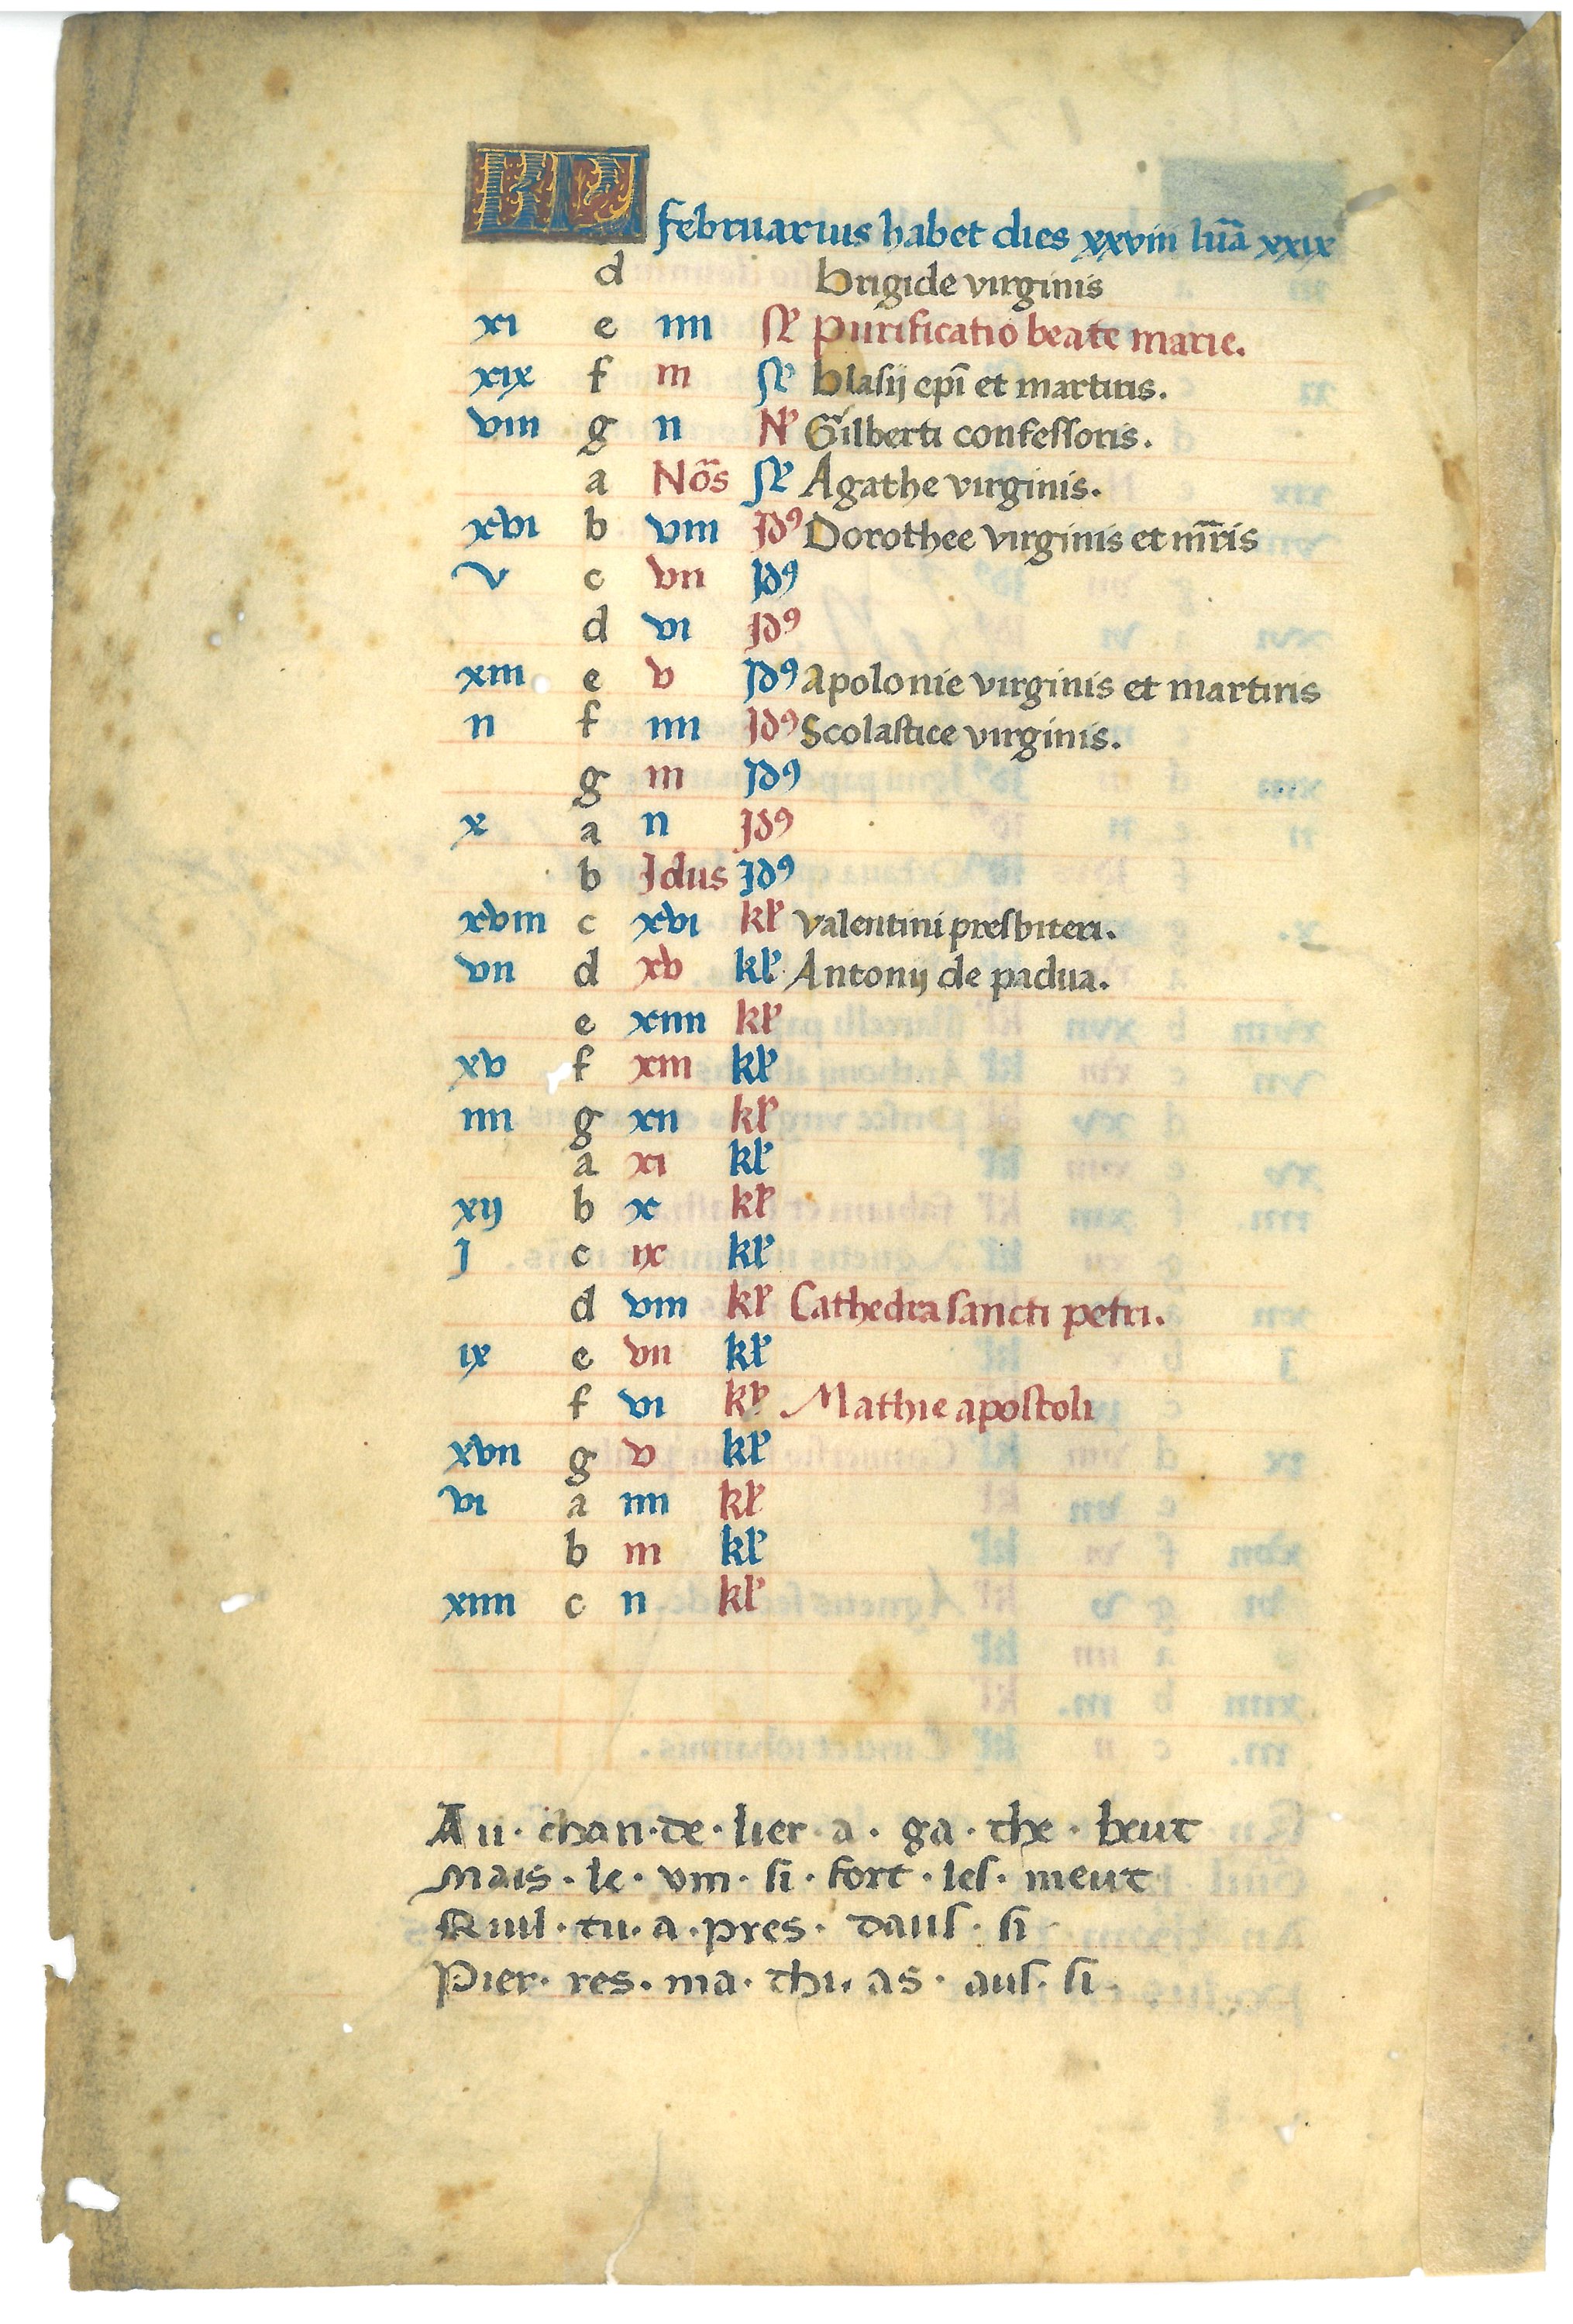 KL februarius habet dies xxviii lūa xxix
d brigide virginis
xi e iiii ſꝫ purificatio beate marie.
xix f iii ſꝫ blasij ep̄i et martiris.
viii g ii Nꝫ Gilberti confessoris.
a Nōs ſꝫ Agathe virginis.
xvi b viii Jdꝰ Dorothee virginis et mr̄ris
v c vii Jdꝰ
d vi Jdꝰ
xiii e v Jdꝰ Apolonie virginis et martiris
ii f iiii Jdꝰ Scolastice virginis.
g iii Jdꝰ
x a ii Jdꝰ
b Jdus Jdꝰ
xviii c xvi kl valentini presbiteri.
vii d xv kl Antonij de padua.
e xiiii kl
xv f xiii kl
iiii g xii kl
a xi kl
xij b x kl
j c ix kl
d viii kl Cathedra sancti petri.
ix e vii kl
f vi kl Mathie apostoli
xvii g v kl
vi a iiii kl
b iii kl
xiiii c ii kl
Au · chan · de · lier · a · ga · the · beut
Mais · le · vin · si · fort · les · meut
Quil · tu · a · pres · daus · si
Pier · res · ma · thi · as · aus · si ·